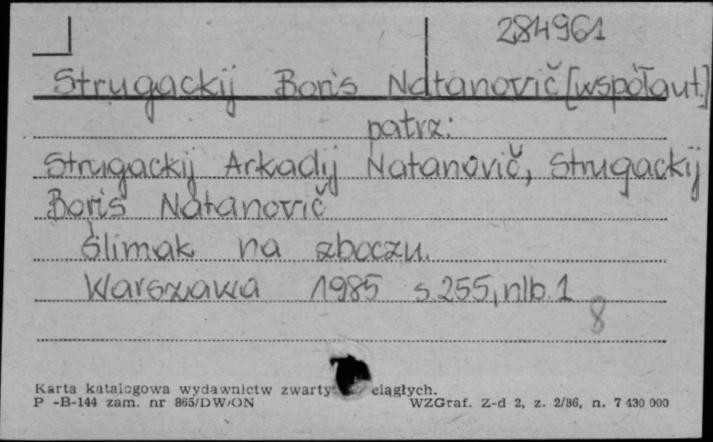 284961
Strugackij Boris Natanovič [współaut.]
patrz:
Strugackij Arkadij Natanovič, Strugackij
Boris Natanovič
Ślimak na zboczu.
Warszawa 1985 s.255, nlb.1
8
Karta katalogowa wydawnictw zwarty ciągłych.
P -B-144 zam. nr 865/DW/ON WZGraf. Z-d 2, z. 2/86, n. 7 430 000